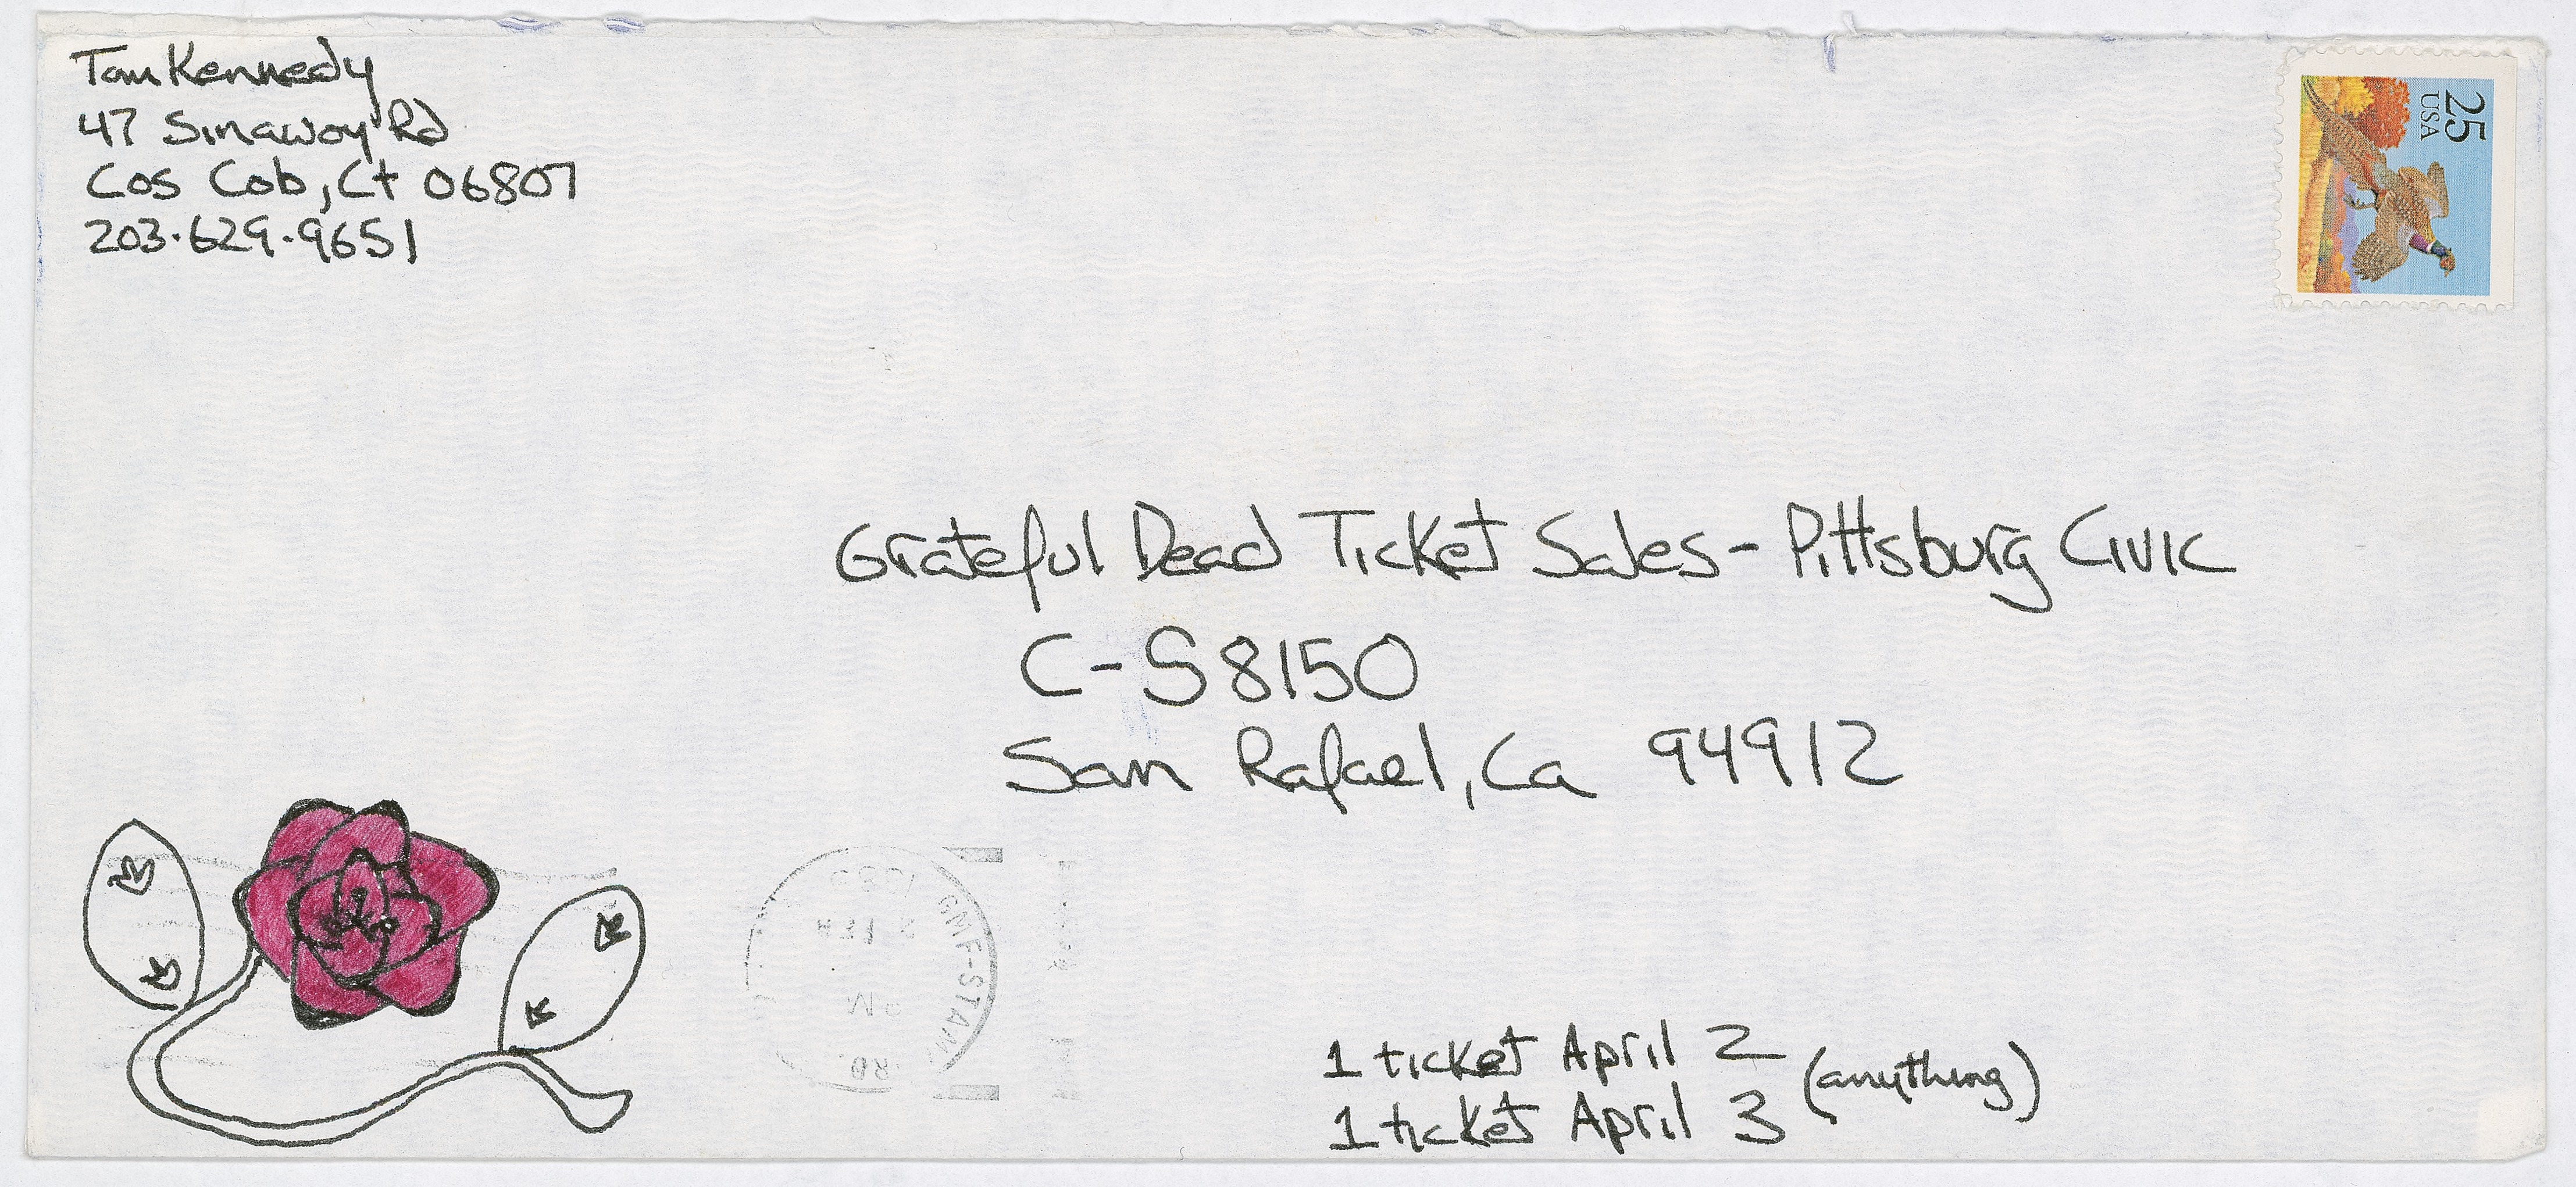 Tom Kennedy
47 Sinawoy Rd
Cos Cob, Ct 06807
203.629.9651
25
USA
Grateful Dead Ticket Sales - Pittsburg Civic
C-S 8150
San Rafael, Ca 94912
GMF-STAM
PM
1 ticket April 2
(anything)
1 ticket April 3